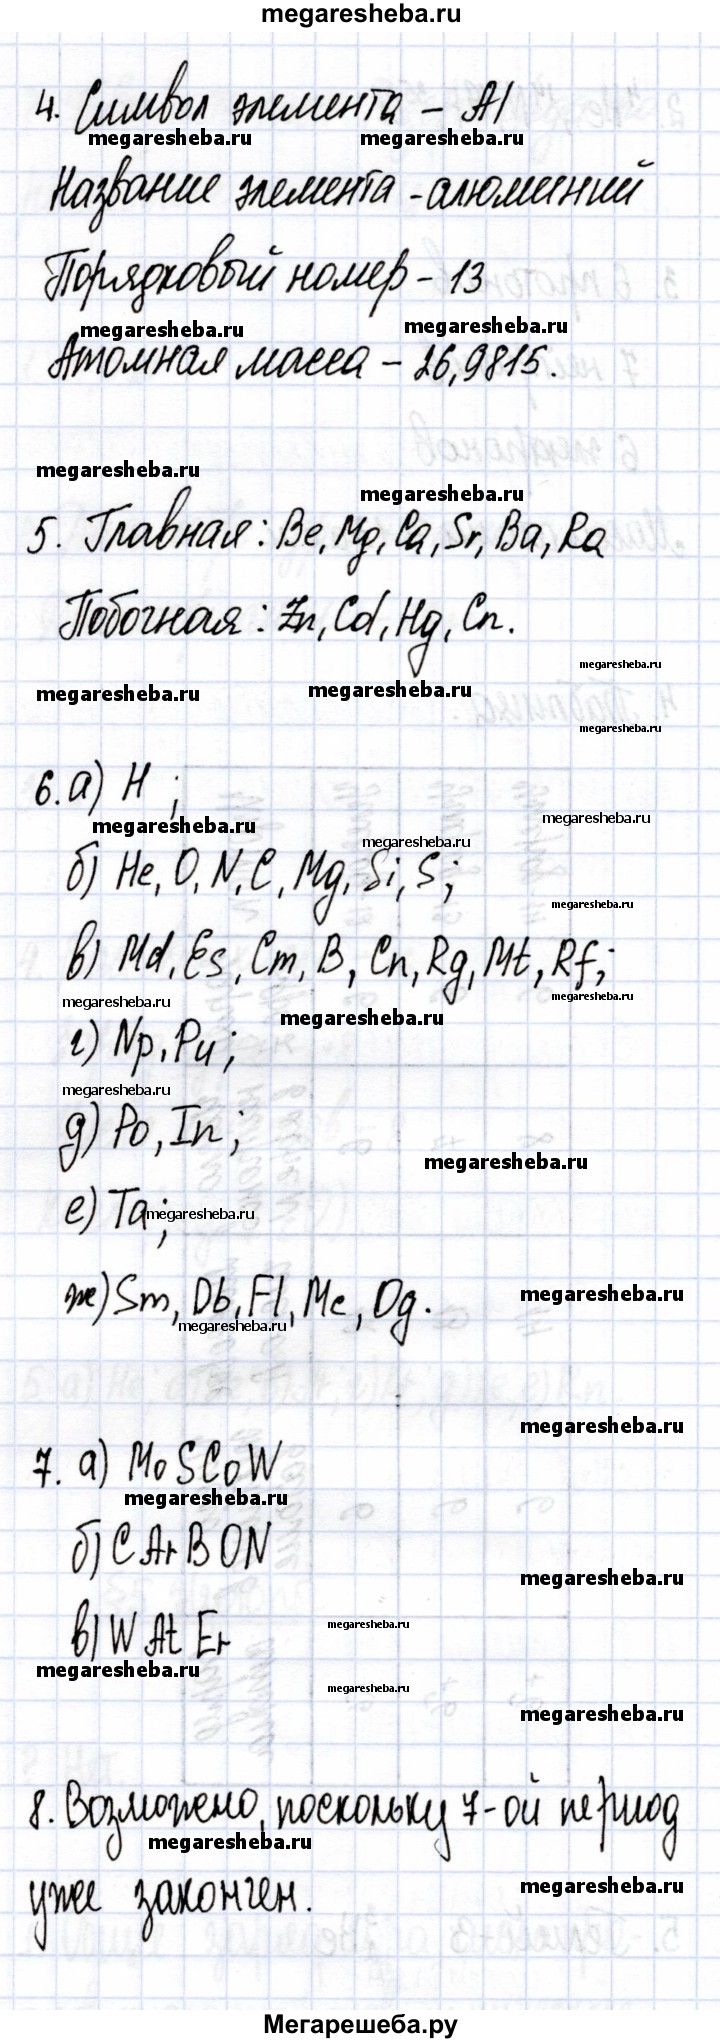 megaresheba.ru
4. Символ элемента – Al
megaresheba.ru megaresheba.ru
Название элемента - алюминий
Порядковый номер – 13
megaresheba.ru megaresheba.ru
Атомная масса – 26,9815.
megaresheba.ru
megaresheba.ru
5. Главная: Be, Mg, Ca, Sr, Ba, Ra
Побочная: Zn, Cd, Hg, Cn.
megaresheba.ru
megaresheba.ru megaresheba.ru
megaresheba.ru
6. а) H ;
megaresheba.ru megaresheba.ru
megaresheba.ru
б) He, O, N, C, Mg, Si, S;
megaresheba.ru
в) Md, Es, Cm, B, Cn, Rg, Mt, Rf;
megaresheba.ru megaresheba.ru
megaresheba.ru
г) Np, Pu;
megaresheba.ru
д) Po, In;
megaresheba.ru
е) Ta;
megaresheba.ru
ж) Sm, Db, Fl, Mc, Og.
megaresheba.ru
megaresheba.ru
megaresheba.ru
7. а) MoSCoW
megaresheba.ru
б) CArBON
megaresheba.ru
в) WAtEr
megaresheba.ru
megaresheba.ru
megaresheba.ru
megaresheba.ru
8. Возможно, поскольку 7-ой период
megaresheba.ru
уже закончен.
megaresheba.ru
Мегарешеба.ру